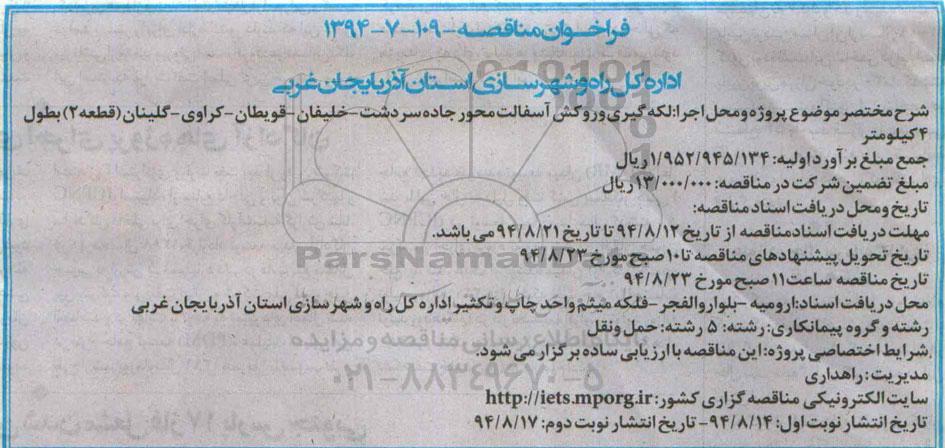 فراخوان مناقصه - ۱۰۹-۷-۱۳۹۴
اداره کل راه و شهرسازی استان آذربایجان غربی
شرح مختصر موضوع پروژه و محل اجرا: لکه گیری و روکش آسفالت محور جاده سردشت-خلیفان-قویطان-کراوی-گلینان (قطعه ۲) بطول
۴ کیلومتر
جمع مبلغ برآورد اولیه: ۱/۹۵۲/۹۴۵/۱۳۴ ریال
مبلغ تضمین شرکت در مناقصه: ۱۳/۰۰۰/۰۰۰ ریال
تاریخ و محل دریافت اسناد مناقصه:
مهلت دریافت اسناد مناقصه از تاریخ ۹۴/۸/۱۲ تا تاریخ ۹۴/۸/۲۱ می باشد.
تاریخ تحویل پیشنهادهای مناقصه تا ۱۰ صبح مورخ ۹۴/۸/۲۳
تاریخ مناقصه ساعت ۱۱ صبح مورخ ۹۴/۸/۲۳
محل دریافت اسناد: ارومیه - بلوار والفجر - فلکه میثم واحد چاپ و تکثیر اداره کل راه و شهرسازی استان آذربایجان غربی
رشته و گروه پیمانکاری: رشته: ۵ رشته: حمل ونقل
شرایط اختصاصی پروژه: این مناقصه با ارزیابی ساده برگزار می شود.
مدیریت: راهداری
سایت الکترونیکی مناقصه گزاری کشور: http://iets.mporg.ir
تاریخ انتشار نوبت اول: ۹۴/۸/۱۴ - تاریخ انتشار نوبت دوم: ۹۴/۸/۱۷
ParsNamadData
پایگاه اطلاع رسانی مناقصه و مزایده
۰۲۱-۸۸۳۴۹۶۷۰-۵